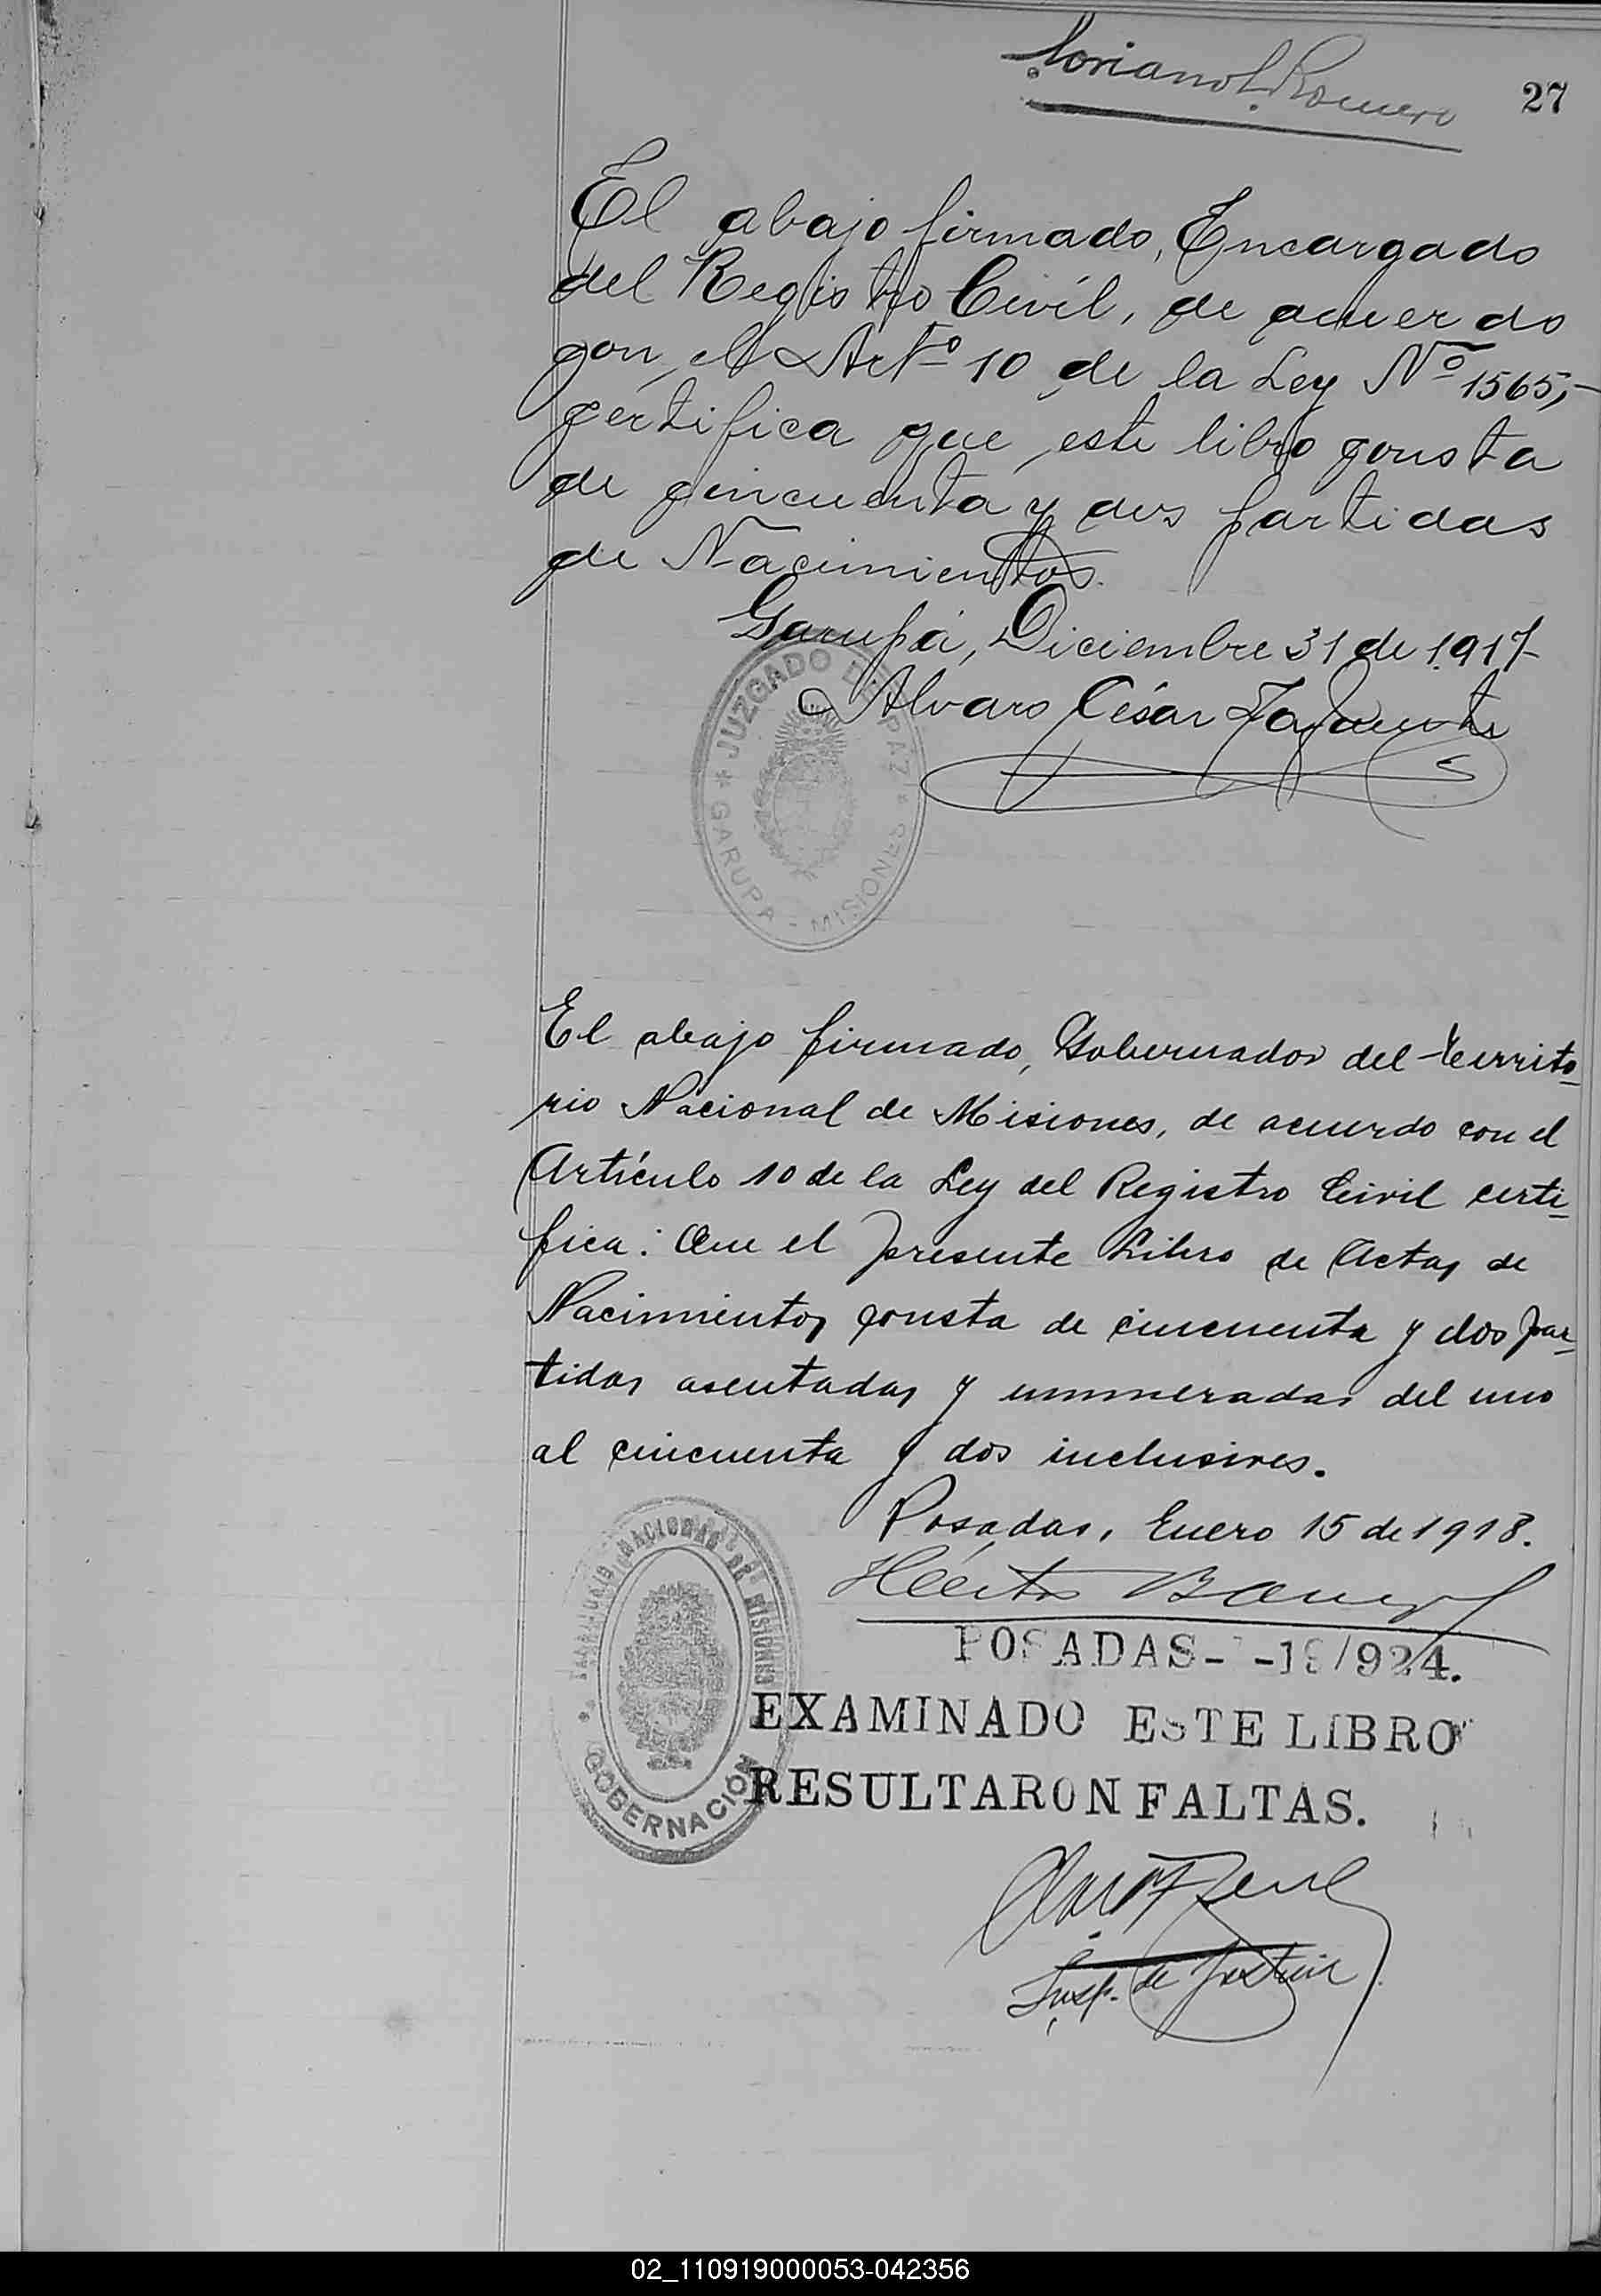 Soriano L. Romero
27
El abajo firmado, Encargado
del Registro Civíl, de acuerdo
con el Artº 10 de la Ley Nº 1565,-
certifica que este libro consta
de cincuenta y dos partidas
de Nacimientos.
Garupá, Diciembre 31 de 1917
Alvaro César
JUZGADO DE PAZ
GARUPA - MISIONES
El abajo firmado, Gobernador del territo-
rio Nacional de Misiones, de acuerdo con el
Artículo 10 de la Ley del Registro Civil certi-
fica: Que el presente Libro de Actas de
Nacimientos consta de cincuenta y dos par-
tidas asentadas y enumeradas del uno
al cincuenta y dos inclusives.
Posadas, Enero 15 de 1918.
Héctor
TERRITORIO NACIONAL DE MISIONES
GOBERNACIÓN
POSADAS- -19/924.
EXAMINADO ESTE LIBRO
RESULTARON FALTAS.
Insp. de Justicia
02_110919000053-042356